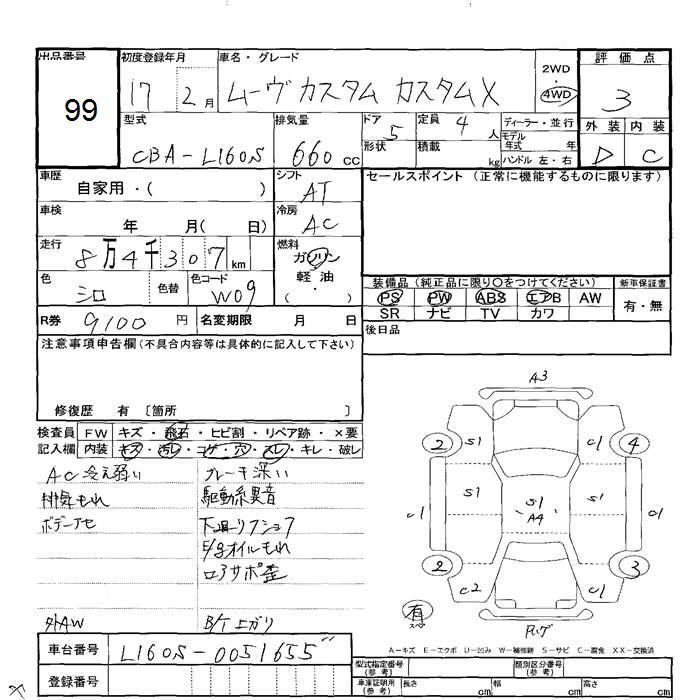 出品番号 初度登録年月 車名・グレード 2WD 評価点
99 17 2月 ムーヴカスタム カスタムX 4WD 3
型式 排気量 ドア 5 定員 4人 ディーラー・並行 外装 内装
CBA-L160S 660cc 形状 積載 kg モデル年式 年 D C
ハンドル 左・右
車歴 自家用・( ) シフト AT セールスポイント (正常に機能するものに限ります)
車検 年 月( 日) 冷房 AC
走行 8万4千307km 燃料 ガソリン
軽油
・( )
色 シロ 色替 色コード W09 装備品(純正品に限り○をつけてください) 新車保証書
PS PW ABS エアB AW 有・無
R券 9100円 名変期限 月 日 SR ナビ TV カワ
注意事項申告欄(不具合内容等は具体的に記入して下さい) 後日品
修復歴 有 〔箇所 〕
検査員 FW キズ・飛石・ヒビ割・リペア跡・×要
記入欄 内装 キズ・汚レ・コゲ・穴・スレ・キレ・破レ
AC冷え弱い ブレーキ深い
排気もれ 駆動系異音
下廻りフショク
オイルもれ
ロアサポ歪
外AW B/Tエガリ
A3
2 S1 C1 4
C1 S1 S1 A4 S1 C1
2 C2 C1 3
有
A-キズ E-エクボ U-凹み W-補修跡 S-サビ C-腐食 XX-交換済
車台番号 L160S-0051655
登録番号
型式指定番号(参考) 類別区分番号(参考)
車庫証明用(参考) 長さ cm 幅 cm 高さ cm